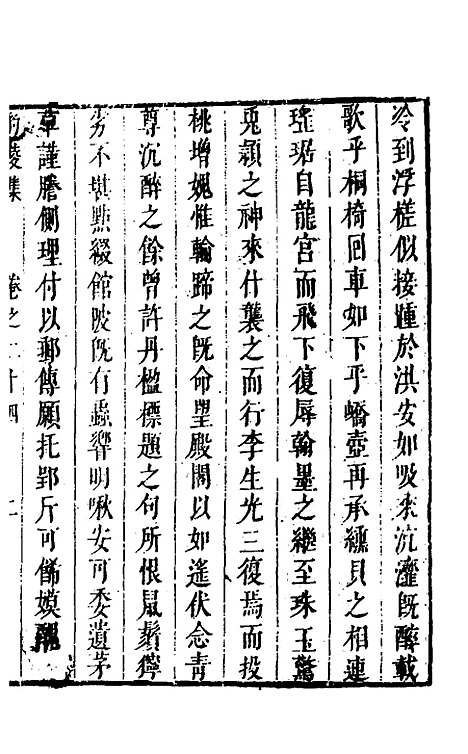 冷到浮槎似接踵於洪安如吸來沆瀣旣醉載
歌乎桐椅回車如下乎嶠壺再承纁貝之相連
瑤琚自龍宮而飛下復辱翰墨之繼至珠玉驚
兎頴之神來什襲之而行李生光三復焉而投
桃增媿惟輪蹄之旣命望殿閣以如遙伏念靑
尊沉醉之餘曾許丹楹標題之句所恨鼠鬚獰
劣不堪㸃綴館陂旣有蟲響明啾安可委遺茅
草謹謄側理付以郵傳願托郢斤可俻嫫
陵集 卷之二十四 二